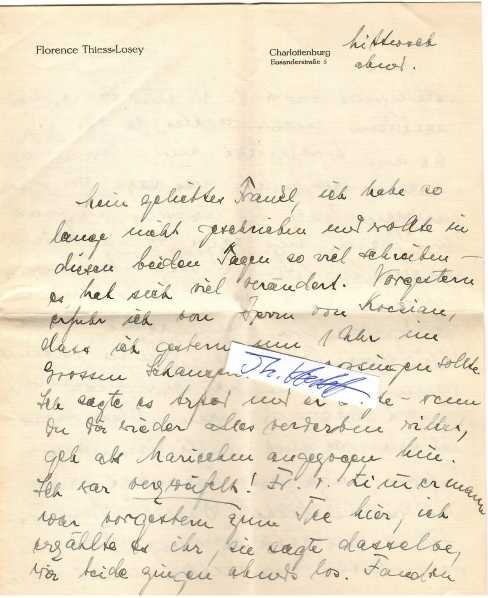 Florence Thiess-Losey
Charlottenburg
Eosanderstraße 5
Mittwoch
abend.
Mein geliebtes Traudl, ich habe so
lange nicht geschrieben und wollte in
diesen beiden Tagen so viel schreiben –
es hat sich viel verändert. Vorgestern
erfuhr ich von Ivom von Kocian,
dass ich gestern um 1 Uhr im
Grossen Schauspiel vorsingen sollte
Ich sagte es und er sagte – wenn
Du Dir wieder alles verderben willst,
geh als Harischen angezogen hin.
Ich war verzweifelt! Fr. v. Zimmermann
war vorgestern zum Tee hier, ich
erzählte es ihr, sie sagte dasselbe,
wir beide gingen abends los. Fanden